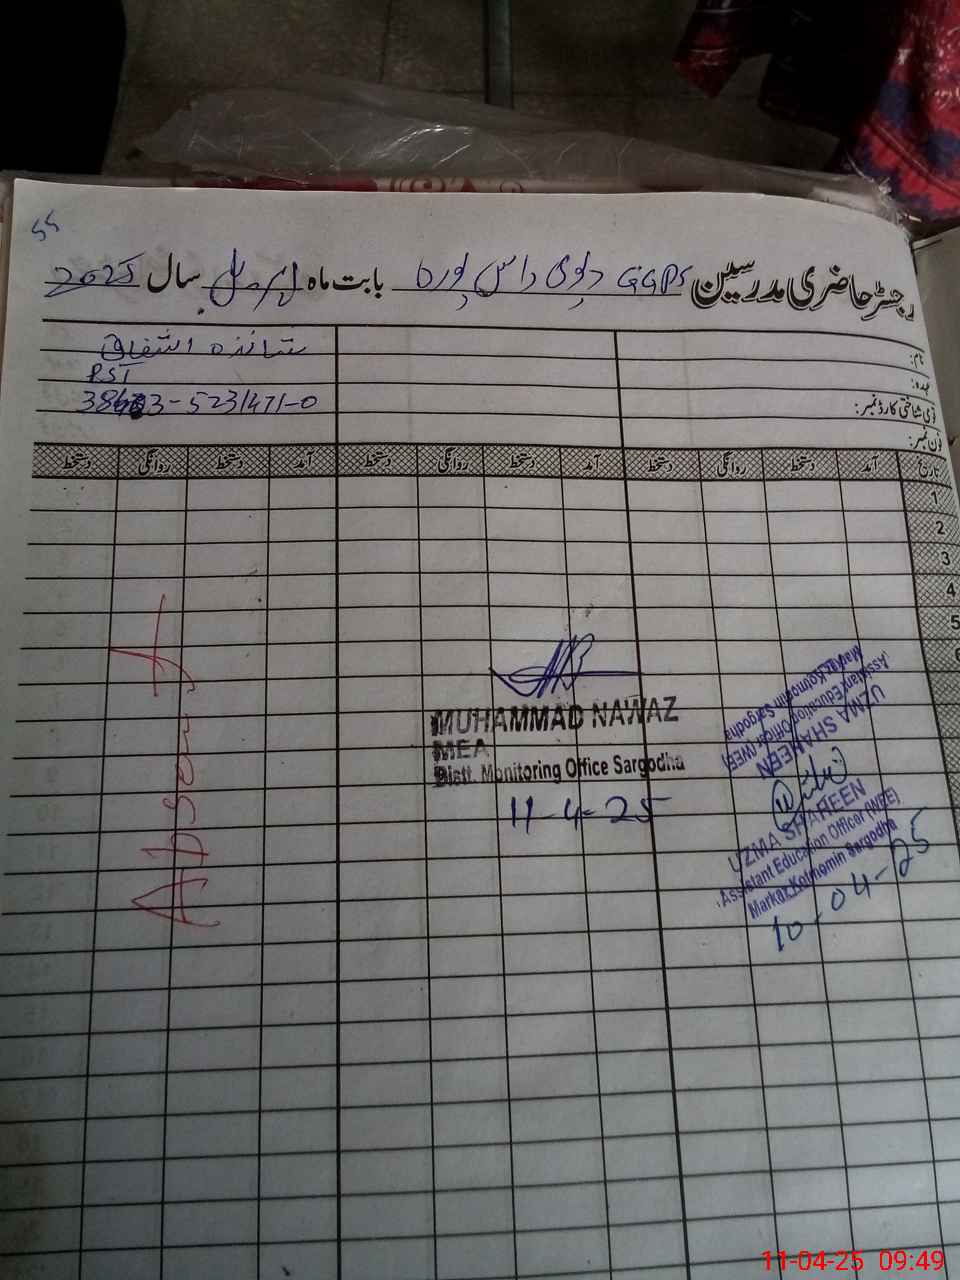 55
رجسٹر حاضری مدرسین GGPS دیوی داس پورہ بابت ماہ اپریل سال 2025
نام:
شائزہ اشفاق
عہدہ:
PST
قومی شناختی کارڈ نمبر:
38403-5231471-0
فون نمبر:
تاریخ آمد دستخط روانگی دستخط آمد دستخط روانگی دستخط آمد دستخط روانگی دستخط
1
2
3
4
5
6
Absent
MUHAMMAD NAWAZ
MEA
Distt. Monitoring Office Sargodha
11-4-25
UZMA SHAHEEN
Assistant Education Officer (WEE)
Markaz Kotmomin Sargodha
UZMA SHAHEEN
Assistant Education Officer (WEE)
Markaz Kotmomin Sargodha
10-04-25
11-04-25 09:49